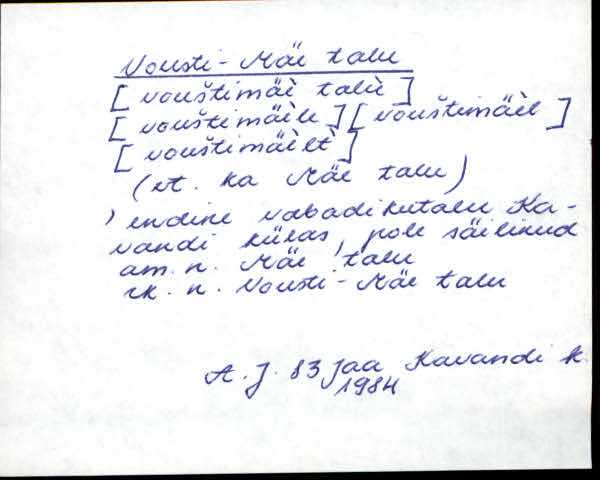 Vousti-Mäe talu
[vouštimäè talù]
[vouštimäèle] [vouštimäèl]
[vouštimäèlt]
(vt. ka Mäe talu)
, endine vabadikutalu Ka-
vandi külas, pole säilinud
am. n. Mäe talu
rk. n. Vousti-Mäe talu
A. J. 83 Jaa Kavandi k.
1984